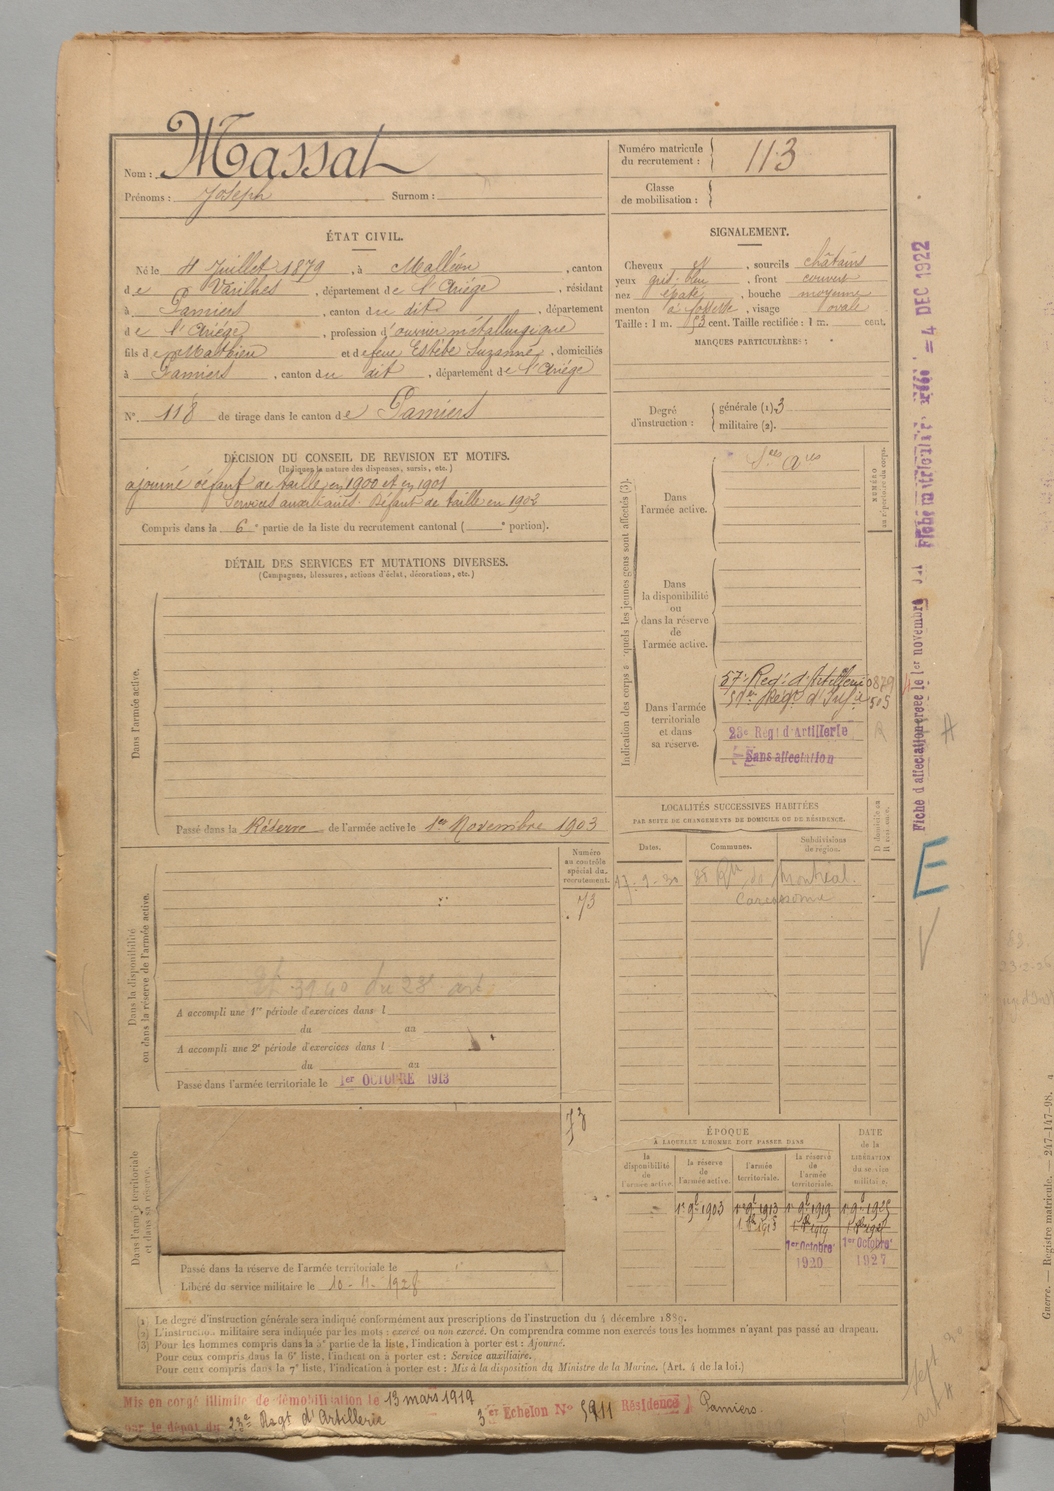 Nom : Massat
Prénoms : Joseph Surnom :
Numéro matricule du recrutement : 113
Classe de mobilisation :
ÉTAT CIVIL.
Né le 4 Juillet 1879, à Malléon, canton
de Varilhes, département de l'Ariège, résidant
à Pamiers, canton du dit, département
de l'Ariège, profession d'ouvrier métallurgique
fils de Mathieu et de feue Estèbe Suzanne, domiciliés
à Pamiers, canton du dit, département de l'Ariège
N° 118 de tirage dans le canton de Pamiers
SIGNALEMENT.
Cheveux et, sourcils châtains
yeux gris-bleu, front couvert
nez épaté, bouche moyenne
menton à fossette, visage ovale
Taille : 1 m. 53 cent. Taille rectifiée : 1 m. cent.
MARQUES PARTICULIÈRES :
Degré d'instruction : générale (1). 3
militaire (2).
DÉCISION DU CONSEIL DE REVISION ET MOTIFS.
(Indiquer la nature des dispenses, sursis, etc.)
ajourné défaut de taille, en 1900 et en 1901
Services auxiliaires. Défaut de taille en 1902
Compris dans la 6e partie de la liste du recrutement cantonal ( e portion).
DÉTAIL DES SERVICES ET MUTATIONS DIVERSES.
(Campagnes, blessures, actions d'éclat, décorations, etc.)
Dans l'armée active.
Passé dans la Réserve de l'armée active le 1er Novembre 1903
Indication des corps auxquels les jeunes gens sont affectés (3).
NUMÉRO au répertoire du corps.
Dans l'armée active.
Sces Ares
Dans la disponibilité ou dans la réserve de l'armée active.
Dans l'armée territoriale et dans sa réserve.
57e Regt d'Artillerie 0879
Regt d'Infie 505
23e Régt d'Artillerie
Sans affectation
LOCALITÉS SUCCESSIVES HABITÉES
PAR SUITE DE CHANGEMENTS DE DOMICILE OU DE RÉSIDENCE.
Dates. Communes. Subdivisions de région. D domicile ou R résidence.
17-9-30 de Montréal.
Carcassonne
Dans la disponibilité ou dans la réserve de l'armée active.
Numéro au contrôle spécial du recrutement.
73
du 23e art
A accompli une 1re période d'exercices dans l
du au
A accompli une 2e période d'exercices dans l
du au
Passé dans l'armée territoriale le 1er OCTOBRE 1913
Dans l'armée territoriale et dans sa réserve.
73
Passé dans la réserve de l'armée territoriale le
Libéré du service militaire le 10-11-1928
ÉPOQUE
À LAQUELLE L'HOMME DOIT PASSER DANS
DATE de la LIBÉRATION du service militaire.
la disponibilité de l'armée active. la réserve de l'armée active. l'armée territoriale. la réserve de l'armée territoriale.
1er 9bre 1903 1er 9bre 1913 1er 9bre 1919 1er 9bre 1925
1er Octobre 1920 1er Octobre 1927
(1) Le degré d'instruction générale sera indiqué conformément aux prescriptions de l'instruction du 4 décembre 1889.
(2) L'instruction militaire sera indiquée par les mots : exercé ou non exercé. On comprendra comme non exercés tous les hommes n'ayant pas passé au drapeau.
(3) Pour les hommes compris dans la 5e partie de la liste, l'indication à porter est : Ajourné.
Pour ceux compris dans la 6e liste, l'indication à porter est : Service auxiliaire.
Pour ceux compris dans la 7e liste, l'indication à porter est : Mis à la disposition du Ministre de la Marine. (Art. 4 de la loi.)
Mis en congé illimité de démobilisation le 13 mars 1919
par le dépôt du 23e Regt d'Artillerie 3er Echelon N° 5911 Résidence ) Pamiers.
Fiche d'affectation créée le 1er novembre
Fiche matriculaire créée = 4 DEC 1922
E
Guerre. — Registre matricule. — 247-147-98.